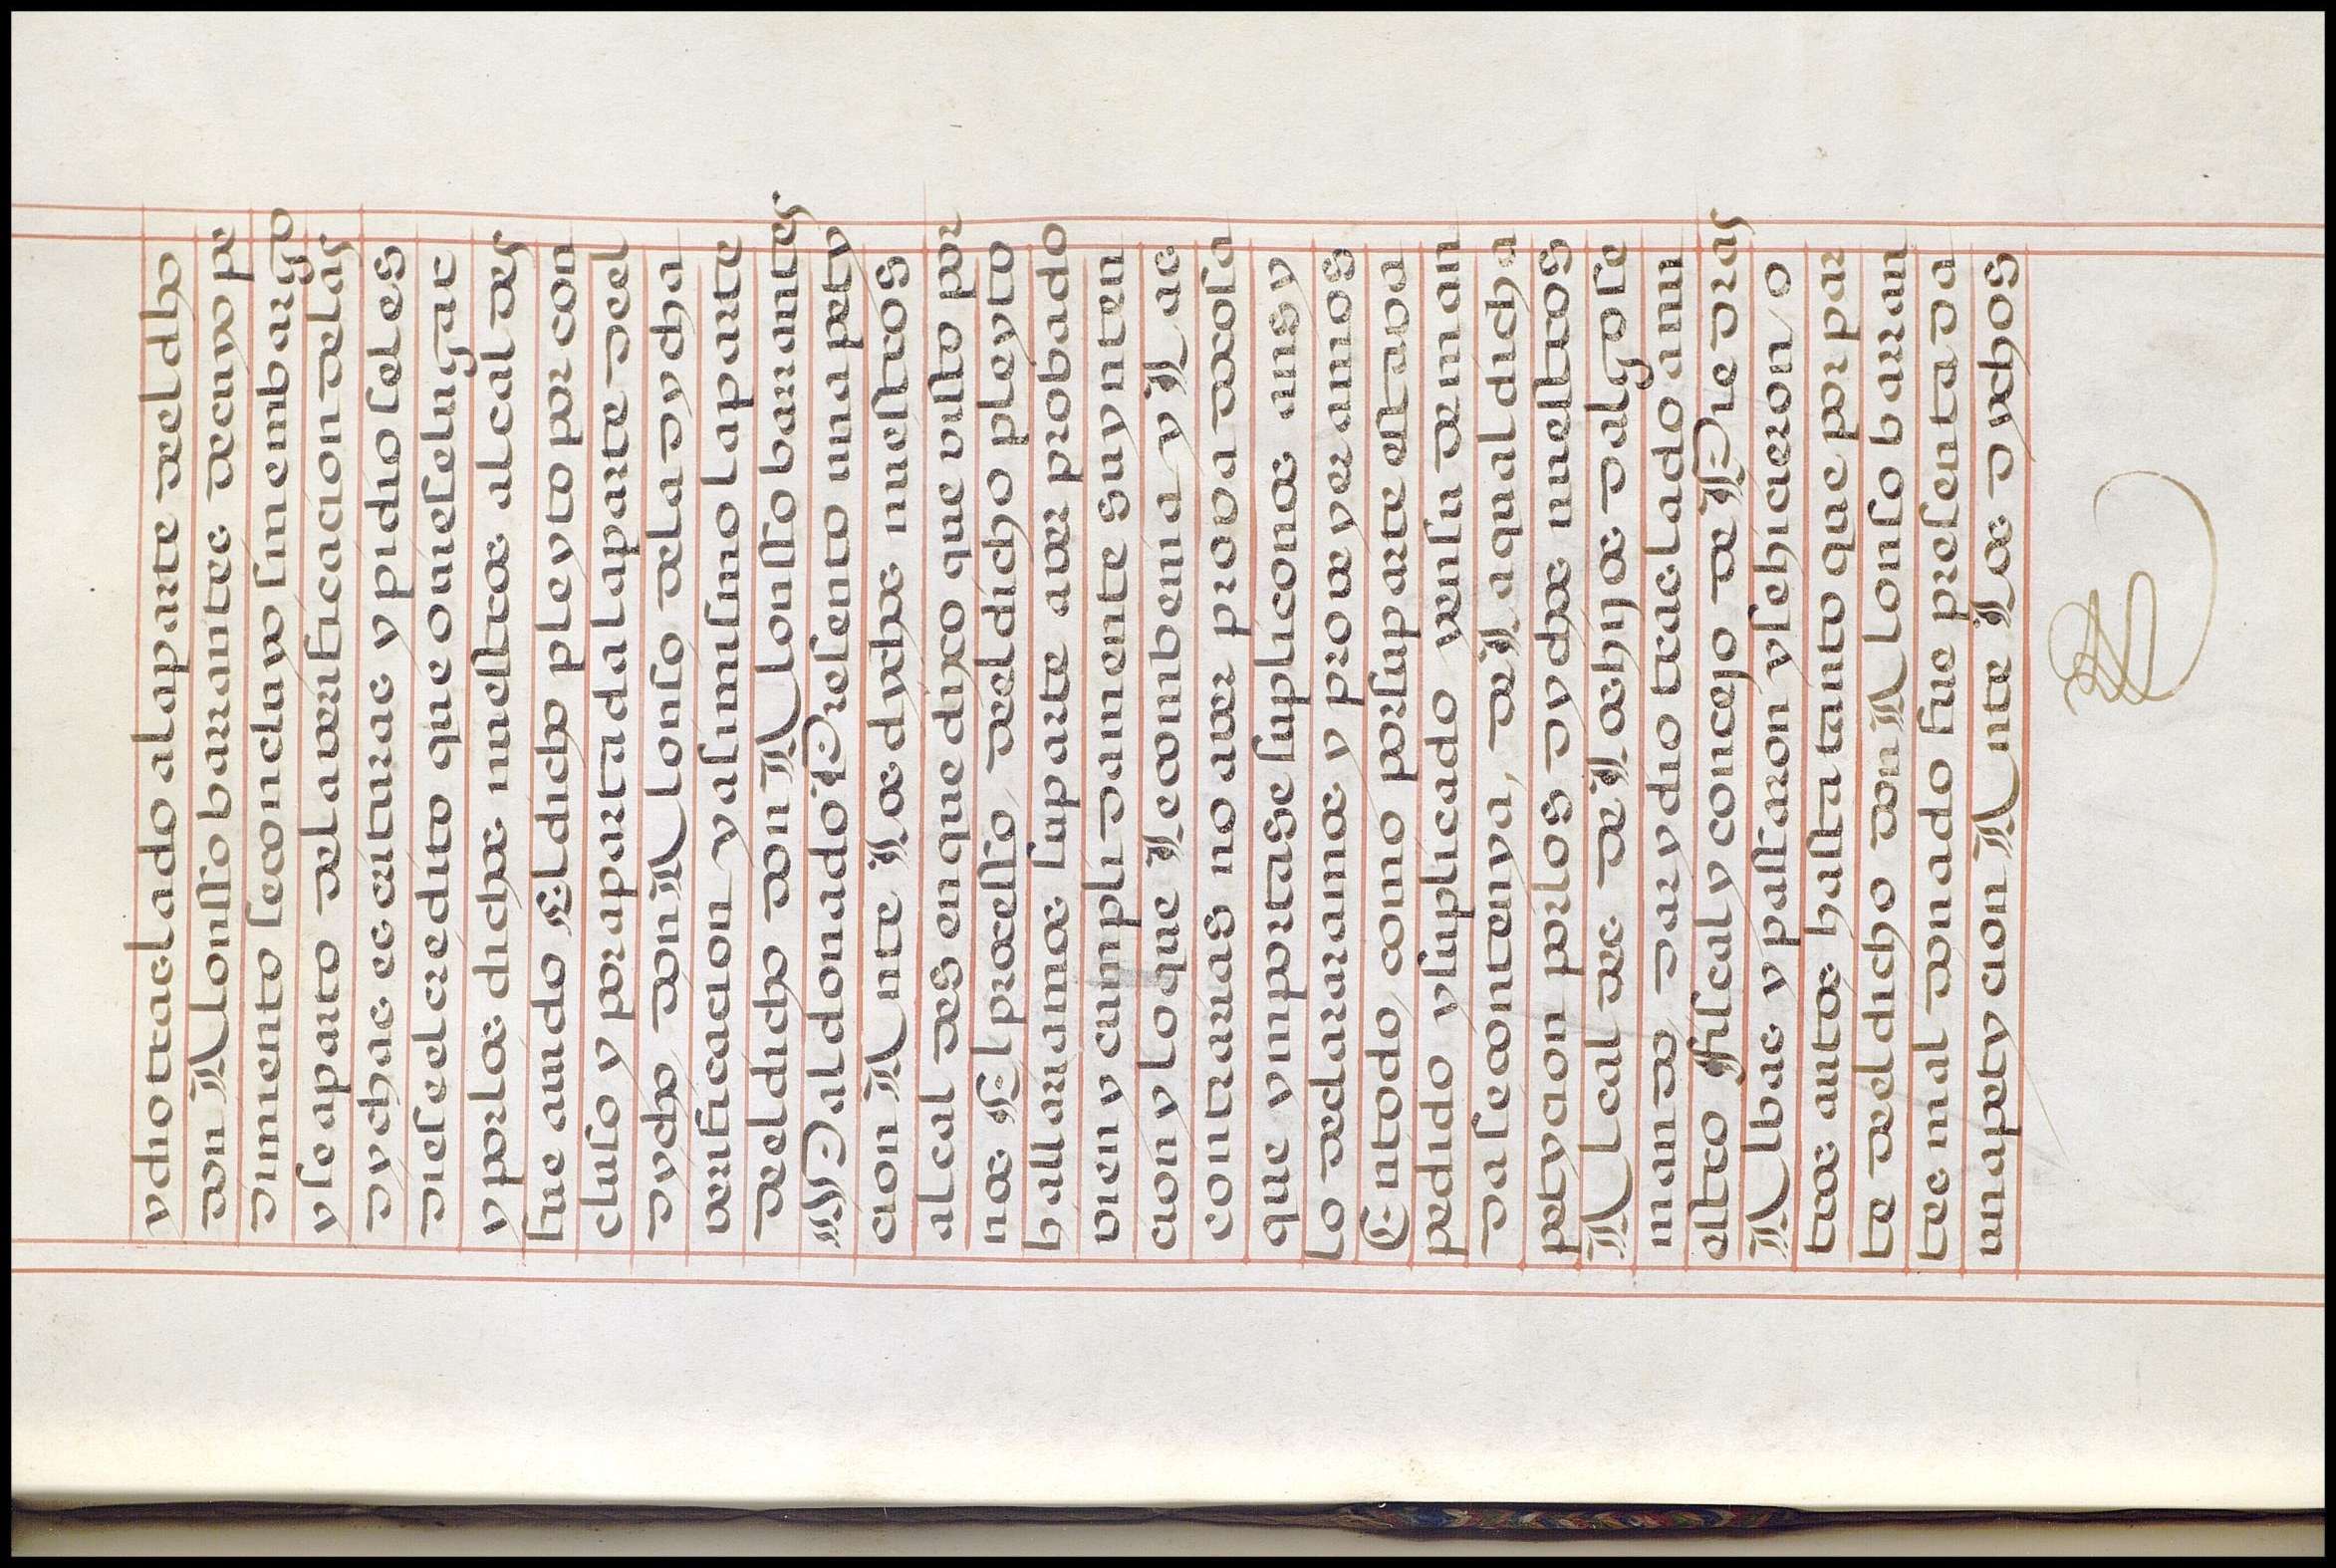 y dio traslado a la parte del dho
don Alonsso barrantes de cuyo pe
dimento se concluyo sin embargo
y se aparto de la verificacion de las
dychas escrituras y pidio se les
diese el credito que oviese lugar
y por los dichos nuestros alcaldes
fue avido El dicho pleyto por con
cluso y por apartada la parte deel
dycho don Alonso de la dycha
verificacion y asimismo la parte
del dicho don Alonsso barrantes
Maldonado Presento una pety
cion Ante Los dychos nuestros
alcaldes en que dixo que visto por
nos El processo del dicho pleyto
hallariamos su parte aver probado
vien y cumplidamente su ynten
cion y lo que Le conbenia y Las
contrarias no aver provado cosa
que ymportase supliconos ansy
lo declararamos y proveyeramos
En todo como por su parte estava
pedido y suplicado ven su deman
da se contenya, de La qual dicha
petycion por los dychos nuestros
Alcaldes de Los hijos dalgo se
mando dar y dio traslado a nu
estro fiscal y concejo de Piedras
Albas y passaron y se hicieron o
tros autos hasta tanto que por par
te del dicho don Alonso barran
tes mal donado fue presentada
una petycion Ante Los dychos